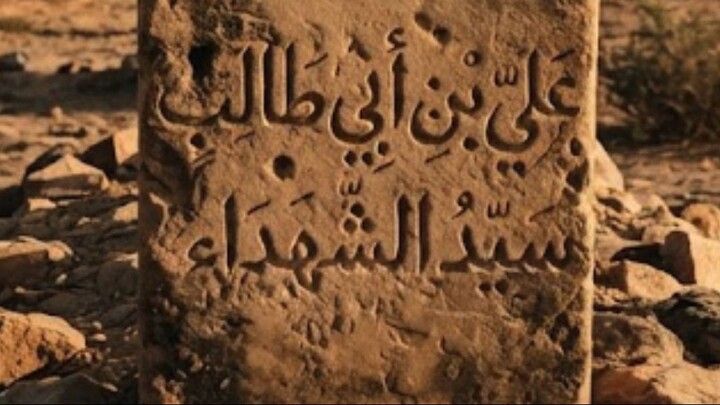 عَلَيّ بْنِ أَبِي طَالِبٍ
سَيِّدُ الشُّهَدَاءِ